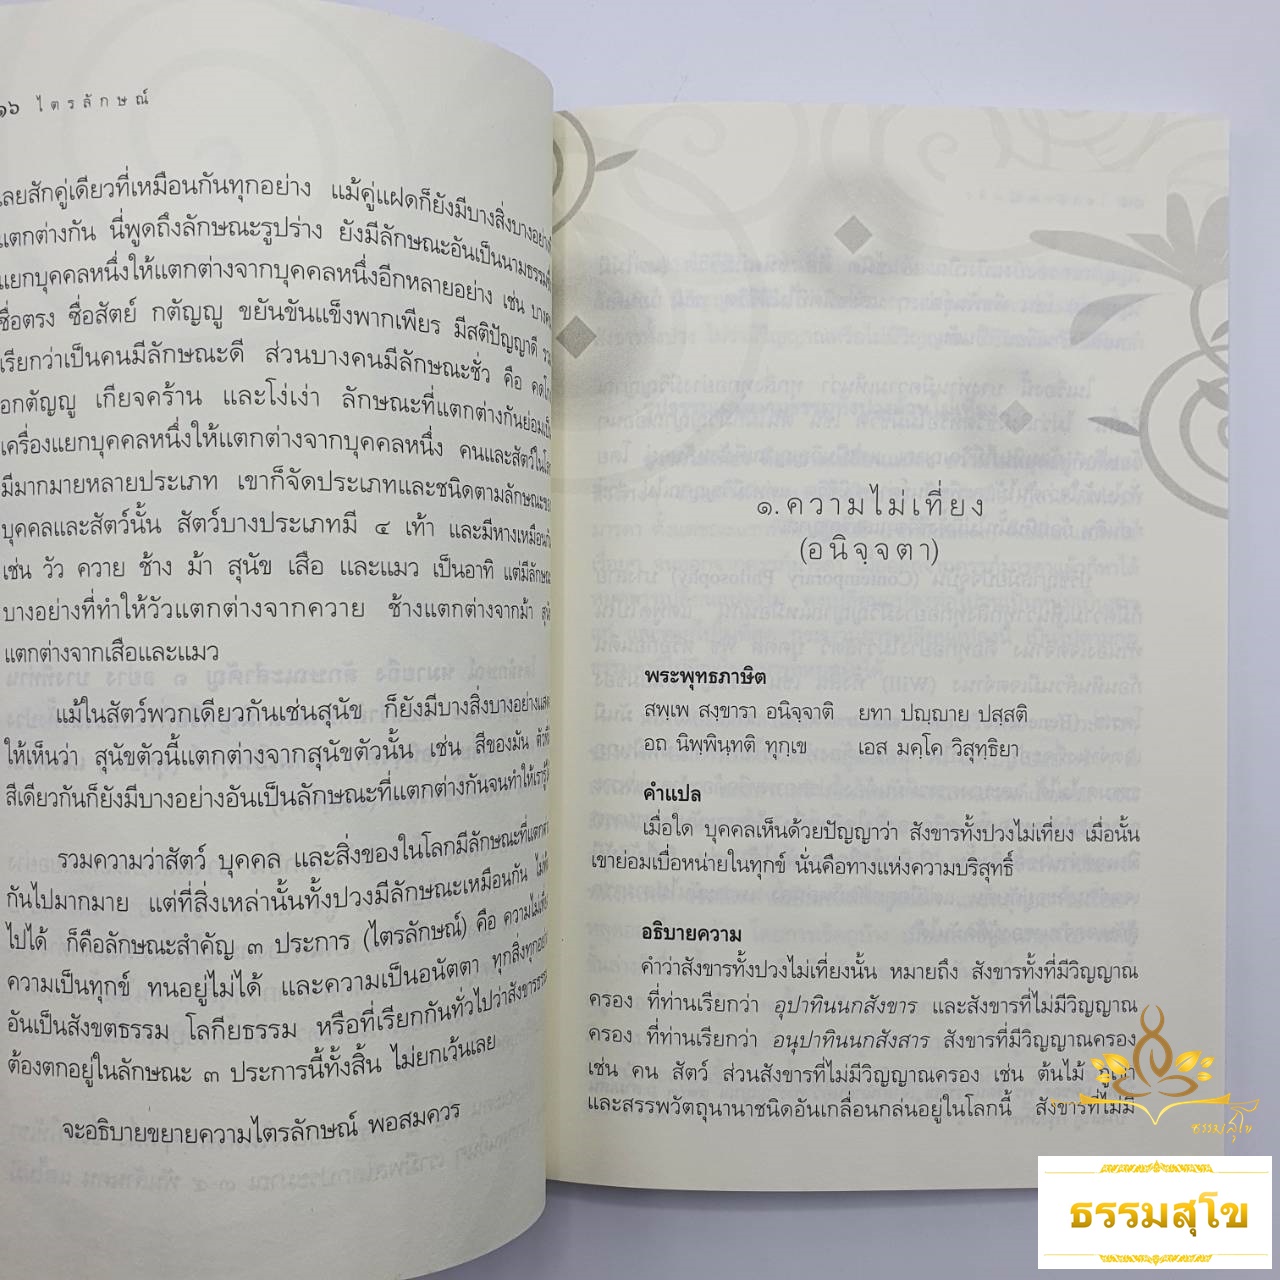 ๑๖ ไตรลักษณ์
เลยสักคู่เดียวที่เหมือนกันทุกอย่าง แม้คู่แฝดก็ยังมีบางสิ่งบางอย่างที่
แตกต่างกัน นี่พูดถึงลักษณะรูปร่าง ยังมีลักษณะอันเป็นนามธรรมที่
แยกบุคคลหนึ่งให้แตกต่างจากบุคคลหนึ่งอีกหลายอย่าง เช่น บางคน
ซื่อตรง ซื่อสัตย์ กตัญญู ขยันขันแข็งพากเพียร มีสติปัญญาดี
เรียกว่าเป็นคนมีลักษณะดี ส่วนบางคนมีลักษณะชั่ว คือ คดโกง
อกตัญญู เกียจคร้าน และโง่เง่า ลักษณะที่แตกต่างกันย่อมเป็น
เครื่องแยกบุคคลหนึ่งให้แตกต่างจากบุคคลหนึ่ง คนและสัตว์ในโลก
มีมากมายหลายประเภท เขาก็จัดประเภทและชนิดตามลักษณะของ
บุคคลและสัตว์นั้น สัตว์บางประเภทมี ๔ เท้า และมีหางเหมือนกัน
เช่น วัว ควาย ช้าง ม้า สุนัข เสือ และแมว เป็นอาทิ แต่มีลักษณะ
บางอย่างที่ทำให้วัวแตกต่างจากควาย ช้างแตกต่างจากม้า สุนัข
แตกต่างจากเสือและแมว
แม้ในสัตว์พวกเดียวกันเช่นสุนัข ก็ยังมีบางสิ่งบางอย่างแสดง
ให้เห็นว่า สุนัขตัวนี้แตกต่างจากสุนัขตัวนั้น เช่น สีของมัน ตัวที่มี
สีเดียวกันก็ยังมีบางอย่างอันเป็นลักษณะที่แตกต่างกันจนทำให้เรารู้ได้
รวมความว่าสัตว์ บุคคล และสิ่งของในโลกมีลักษณะที่แตกต่าง
กันไปมากมาย แต่ที่สิ่งเหล่านั้นทั้งปวงมีลักษณะเหมือนกัน
ไปได้ ก็คือลักษณะสำคัญ ๓ ประการ (ไตรลักษณ์) คือ ความไม่เที่ยง
ความเป็นทุกข์ ทนอยู่ไม่ได้ และความเป็นอนัตตา ทุกสิ่งทุกอย่าง
อันเป็นสังขตธรรม โลกียธรรม หรือที่เรียกกันทั่วไปว่าสังขารธรรม
ต้องตกอยู่ในลักษณะ ๓ ประการนี้ทั้งสิ้น ไม่ยกเว้นเลย
จะอธิบายขยายความไตรลักษณ์ พอสมควร
๑. ความไม่เที่ยง
(อนิจฺจตา)
พระพุทธภาษิต
สพฺเพ สงฺขารา อนิจฺจาติ ยทา ปญฺญาย ปสฺสติ
อถ นิพฺพินฺทติ ทุกฺเข เอส มคฺโค วิสุทฺธิยา
คำแปล
เมื่อใด บุคคลเห็นด้วยปัญญาว่า สังขารทั้งปวงไม่เที่ยง เมื่อนั้น
เขาย่อมเบื่อหน่ายในทุกข์ นั่นคือทางแห่งความบริสุทธิ์
อธิบายความ
คำว่าสังขารทั้งปวงไม่เที่ยงนั้น หมายถึง สังขารทั้งที่มีวิญญาณ
ครอง ที่ท่านเรียกว่า อุปาทินนกสังขาร และสังขารที่ไม่มีวิญญาณ
ครอง ที่ท่านเรียกว่า อนุปาทินนกสังสาร สังขารที่มีวิญญาณครอง
เช่น คน สัตว์ ส่วนสังขารที่ไม่มีวิญญาณครอง เช่น ต้นไม้ ภูเขา
และสรรพวัตถุนานาชนิดอันเกลื่อนกล่นอยู่ในโลกนี้ สังขารที่ไม่มี
ธรรมสุโข
ธรรมสุโข